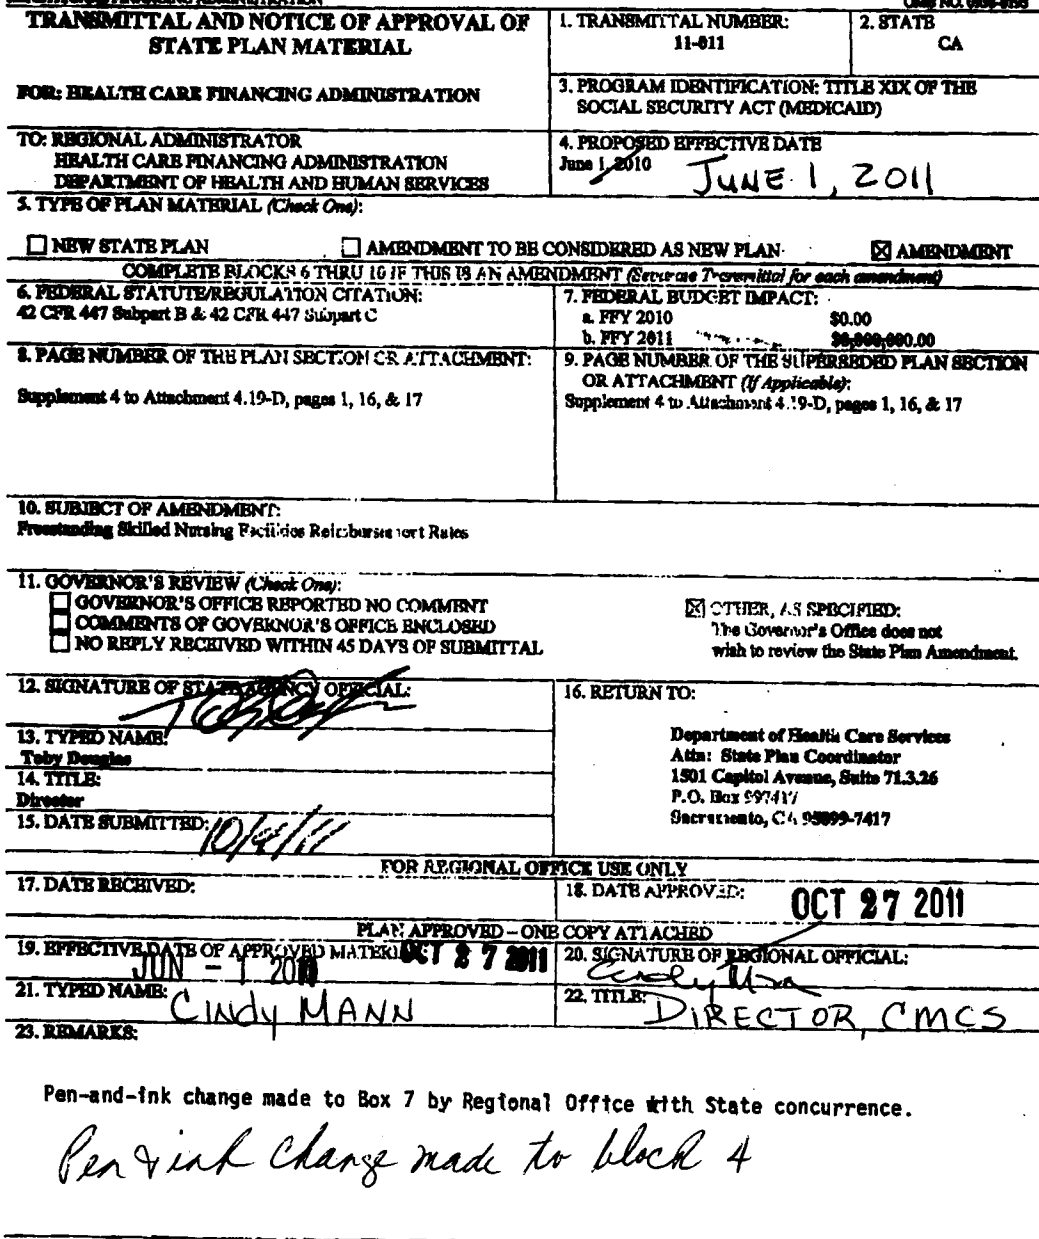 TRANSMITTAL AND NOTICE OF APPROVAL OF
STATE PLAN MATERIAL
FOR: HEALTH CARE FINANCING ADMINISTRATION
1. TRANSMITTAL NUMBER:
11-011
2. STATE
CA
3. PROGRAM IDENTIFICATION: TITLE XIX OF THE
SOCIAL SECURITY ACT (MEDICAID)
TO: REGIONAL ADMINISTRATOR
HEALTH CARE FINANCING ADMINISTRATION
DEPARTMENT OF HEALTH AND HUMAN SERVICES
4. PROPOSED EFFECTIVE DATE
June 1, 2010
JUNE 1, 2011
5. TYPE OF PLAN MATERIAL (Check One):
NEW STATE PLAN
AMENDMENT TO BE CONSIDERED AS NEW PLAN
AMENDMENT
COMPLETE BLOCKS 6 THRU 10 IF THIS IS AN AMENDMENT (Separate Transmittal for each amendment)
6. FEDERAL STATUTE/REGULATION CITATION:
42 CFR 447 Subpart B & 42 CFR 447 Subpart C
7. FEDERAL BUDGET IMPACT:
a. FFY 2010 $0.00
b. FFY 2011
8. PAGE NUMBER OF THE PLAN SECTION OR ATTACHMENT:
Supplement 4 to Attachment 4.19-D, pages 1, 16, & 17
9. PAGE NUMBER OF THE SUPERSEDED PLAN SECTION
OR ATTACHMENT (If Applicable):
Supplement 4 to Attachment 4.19-D, pages 1, 16, & 17
10. SUBJECT OF AMENDMENT:
Freestanding Skilled Nursing Facilities Reimbursement Rates
11. GOVERNOR'S REVIEW (Check One):
GOVERNOR'S OFFICE REPORTED NO COMMENT
COMMENTS OF GOVERNOR'S OFFICE ENCLOSED
NO REPLY RECEIVED WITHIN 45 DAYS OF SUBMITTAL
OTHER, AS SPECIFIED:
The Governor's Office does not
wish to review the State Plan Amendment.
12. SIGNATURE OF STATE AGENCY OFFICIAL:
13. TYPED NAME:
Toby Douglas
14. TITLE:
Director
15. DATE SUBMITTED: 10/4/11
16. RETURN TO:
Department of Health Care Services
Attn: State Plan Coordinator
1501 Capitol Avenue, Suite 71.3.26
P.O. Box 997417
Sacramento, CA 95899-7417
FOR REGIONAL OFFICE USE ONLY
17. DATE RECEIVED:
18. DATE APPROVED: OCT 27 2011
PLAN APPROVED – ONE COPY ATTACHED
19. EFFECTIVE DATE OF APPROVED MATERIAL OCT 27 2011
JUN - 1
20. SIGNATURE OF REGIONAL OFFICIAL:
Cindy Mann
21. TYPED NAME: Cindy MANN
22. TITLE: DIRECTOR, CMCS
23. REMARKS:
Pen-and-ink change made to Box 7 by Regional Office with State concurrence.
Pen & ink change made to block 4